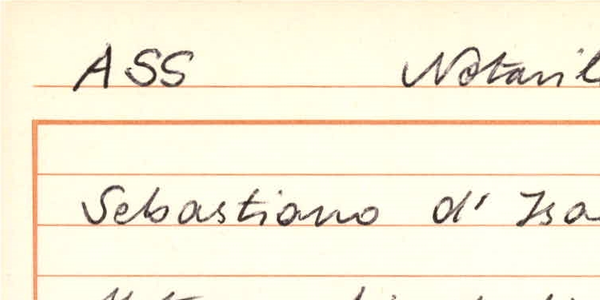 ASS Notaril
Sebastiano d' Isa